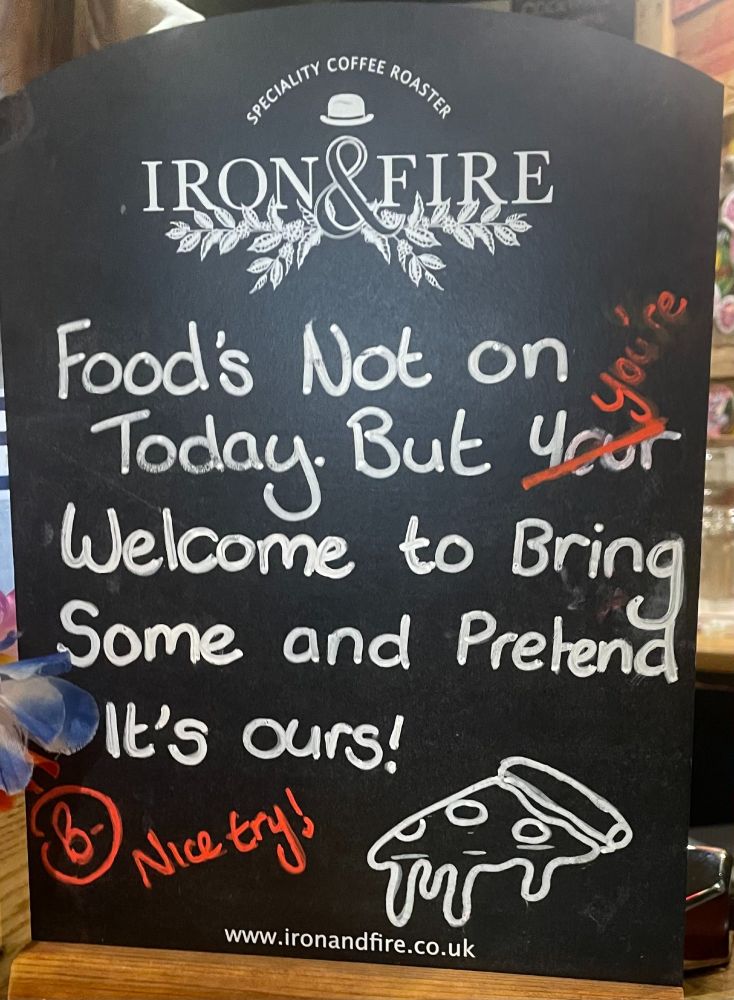 SPECIALITY COFFEE ROASTER
IRON&FIRE
Food's Not on
you're
Today. But your
Welcome to Bring
Some and Pretend
It's ours!
B- Nice try!
www.ironandfire.co.uk